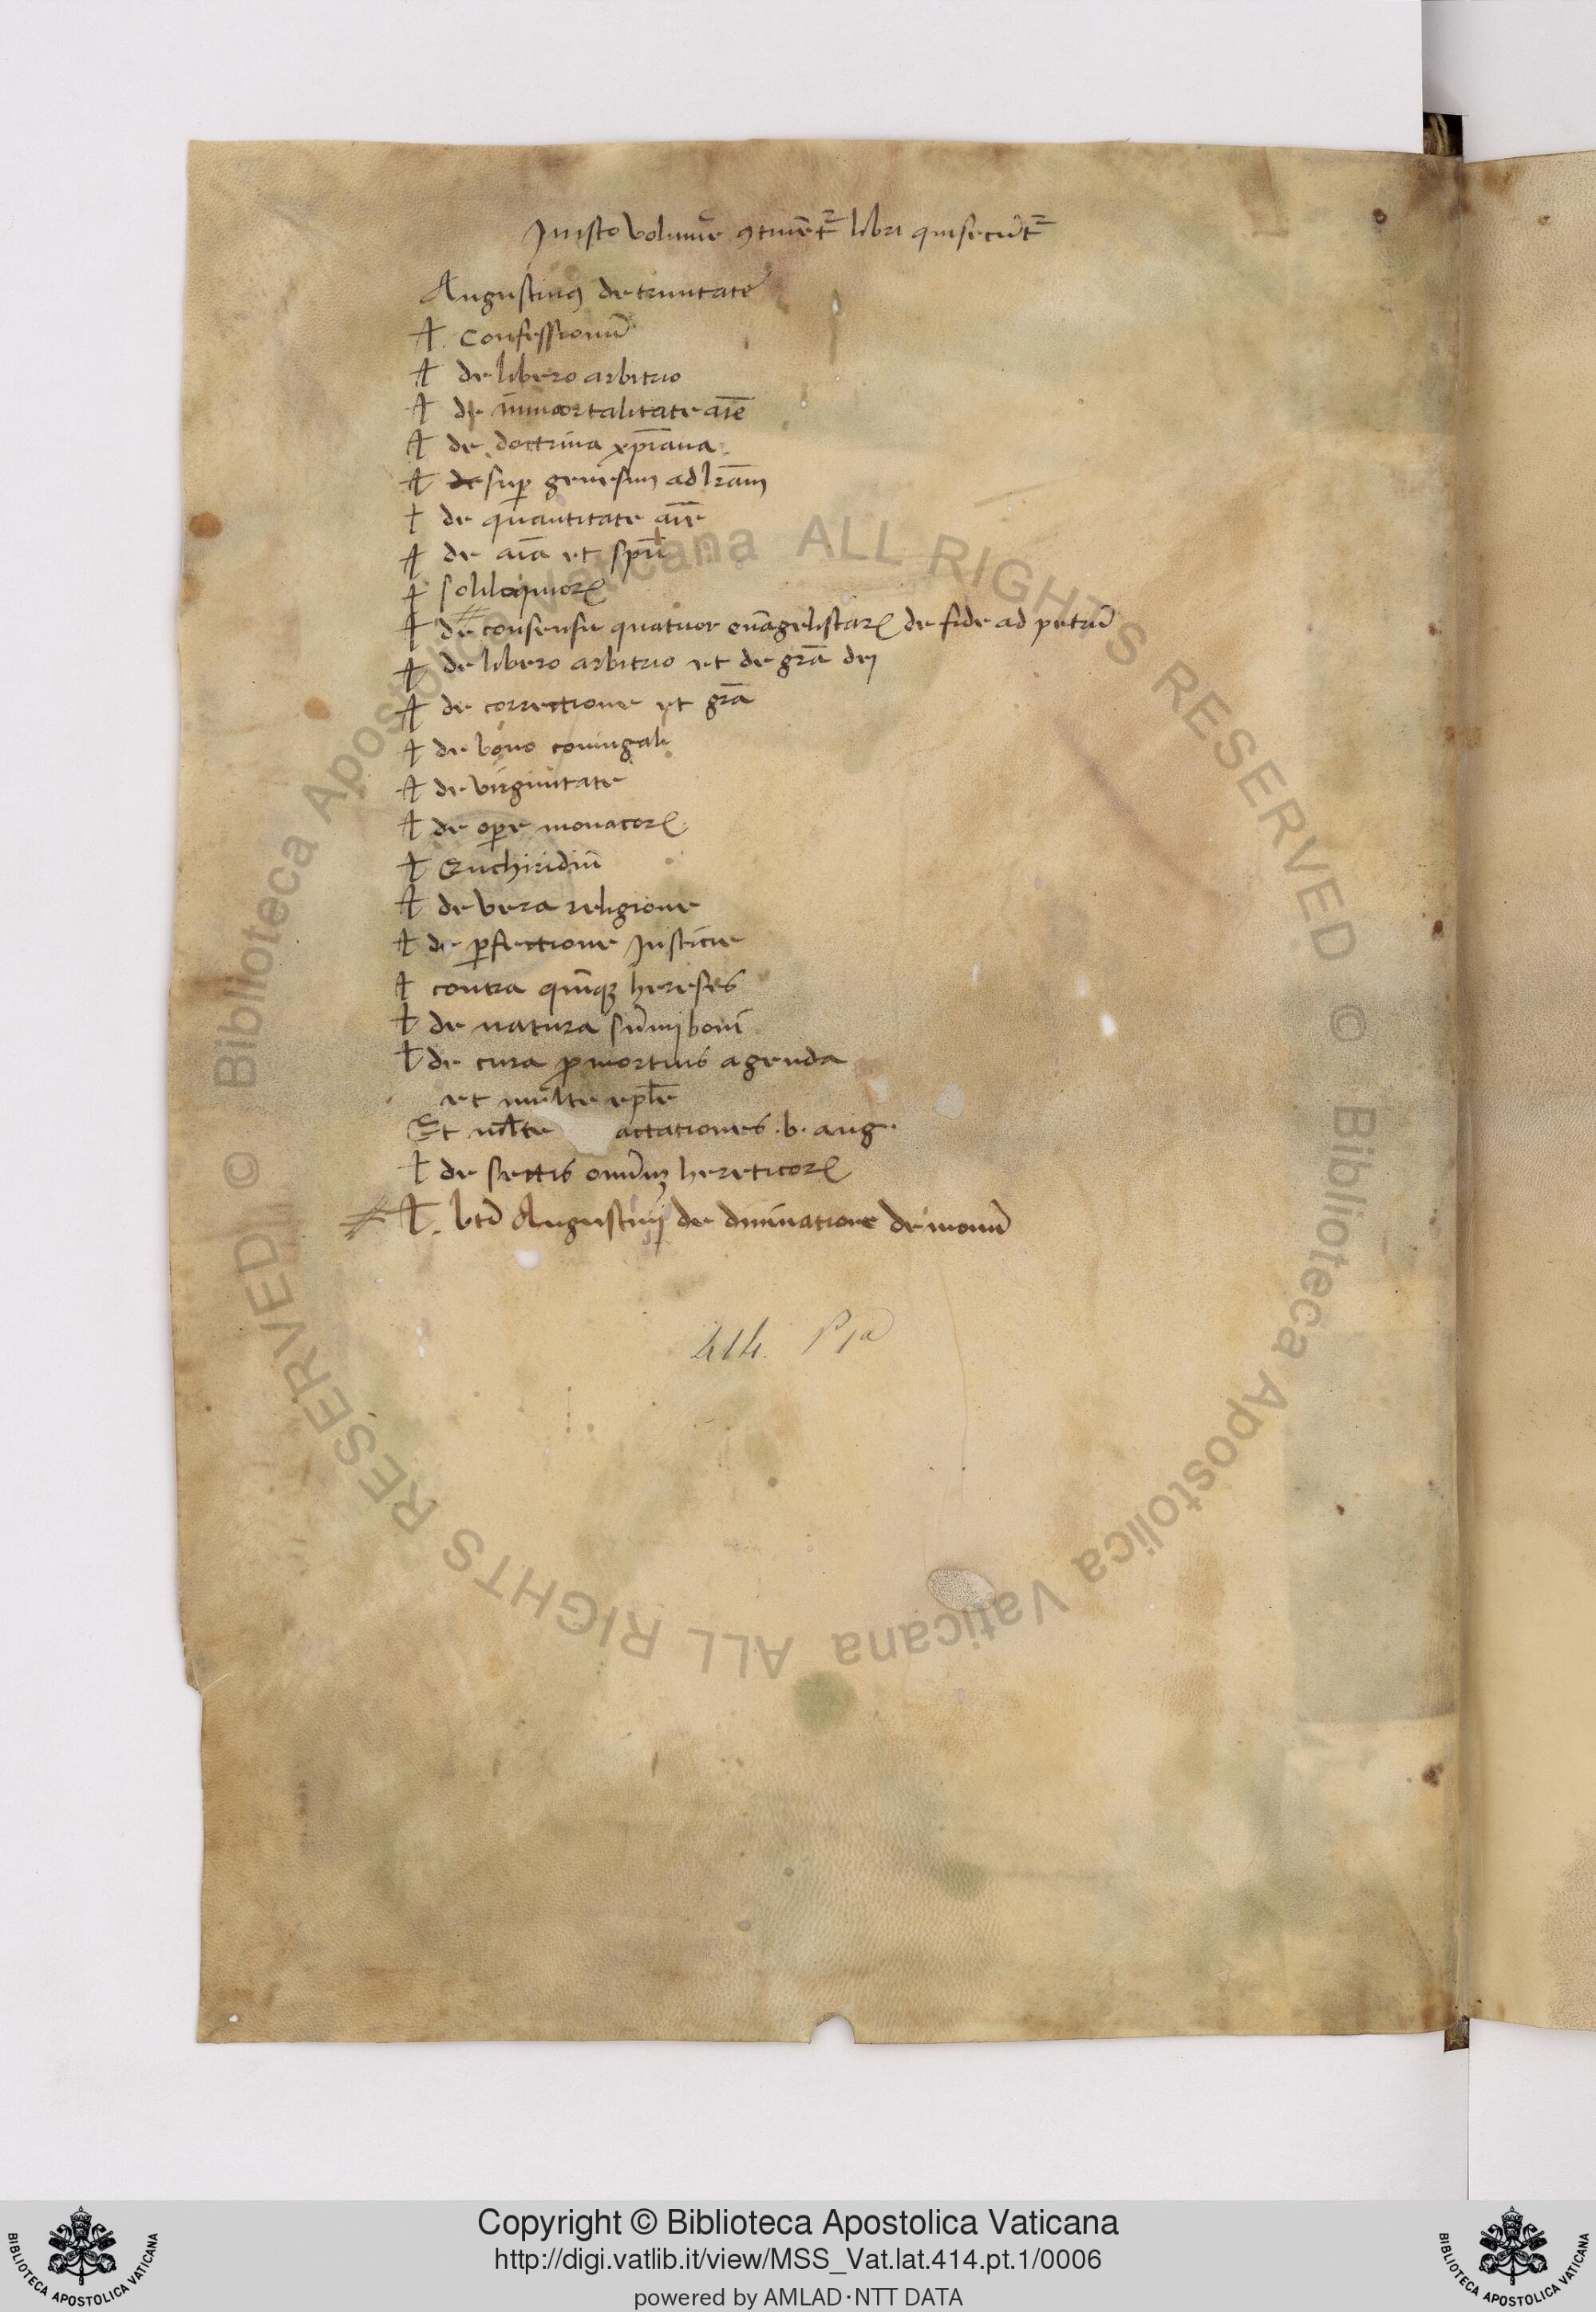 In isto volumīe ꝯtinēt᷑ libri qui secūt᷑
Augustinꝯ de trinitate
A. Confessionū
A de libero arbitrio
A de immortalitate aīe
A de doctrina xp̄iana
A de suꝑ genesim ad lr̄am
A de quantitate aīe
A de aīa et spū
A soliloquioꝝ
A de consensu quatuor euāgelistaꝝ de fide ad petrū
A de libero arbitrio et de grā dej
A de correctione et grā
A de bono coniugali
A de virginitate
A de oꝑe monacoꝝ
A Enchiridiū
A de vera religione
A de ꝑfectione Justicie
A contra quīqꝫ hereses
A de natura sūmj boni
A de cura ꝓ mortuis agenda
et multe eplē
Et ml̄te actationes .b. aug.
A de sectis omniūꝫ hereticoꝝ
A. btī Augustinj de diuinatione demonū
414. P 1a
© Biblioteca Apostolica Vaticana ALL RIGHTS RESERVED
© Biblioteca Apostolica Vaticana ALL RIGHTS RESERVED
BIBLIOTECA APOSTOLICA VATICANA
Copyright © Biblioteca Apostolica Vaticana
http://digi.vatlib.it/view/MSS_Vat.lat.414.pt.1/0006
powered by AMLAD·NTT DATA
BIBLIOTECA APOSTOLICA VATICANA